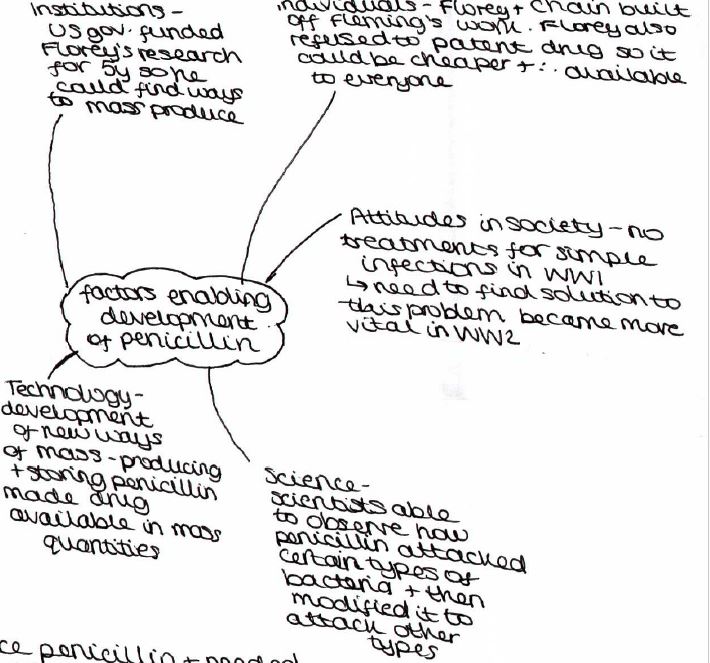 Institutions -
US gov. funded
Florey's research
for 5y so he
could find ways
to mass produce
individuals - Florey + Chain built
off Fleming's work. Florey also
refused to patent drug so it
could be cheaper + ∴ available
to everyone
Attitudes in society - no
treatments for simple
infections in WW1
↳ need to find solution to
this problem became more
vital in WW2
factors enabling
development
of penicillin
Technology -
development
of new ways
of mass-producing
+ storing penicillin
made drug
available in mass
quantities
Science -
scientists able
to observe how
penicillin attacked
certain types of
bacteria + then
modified it to
attack other
types
ce penicillin + needed